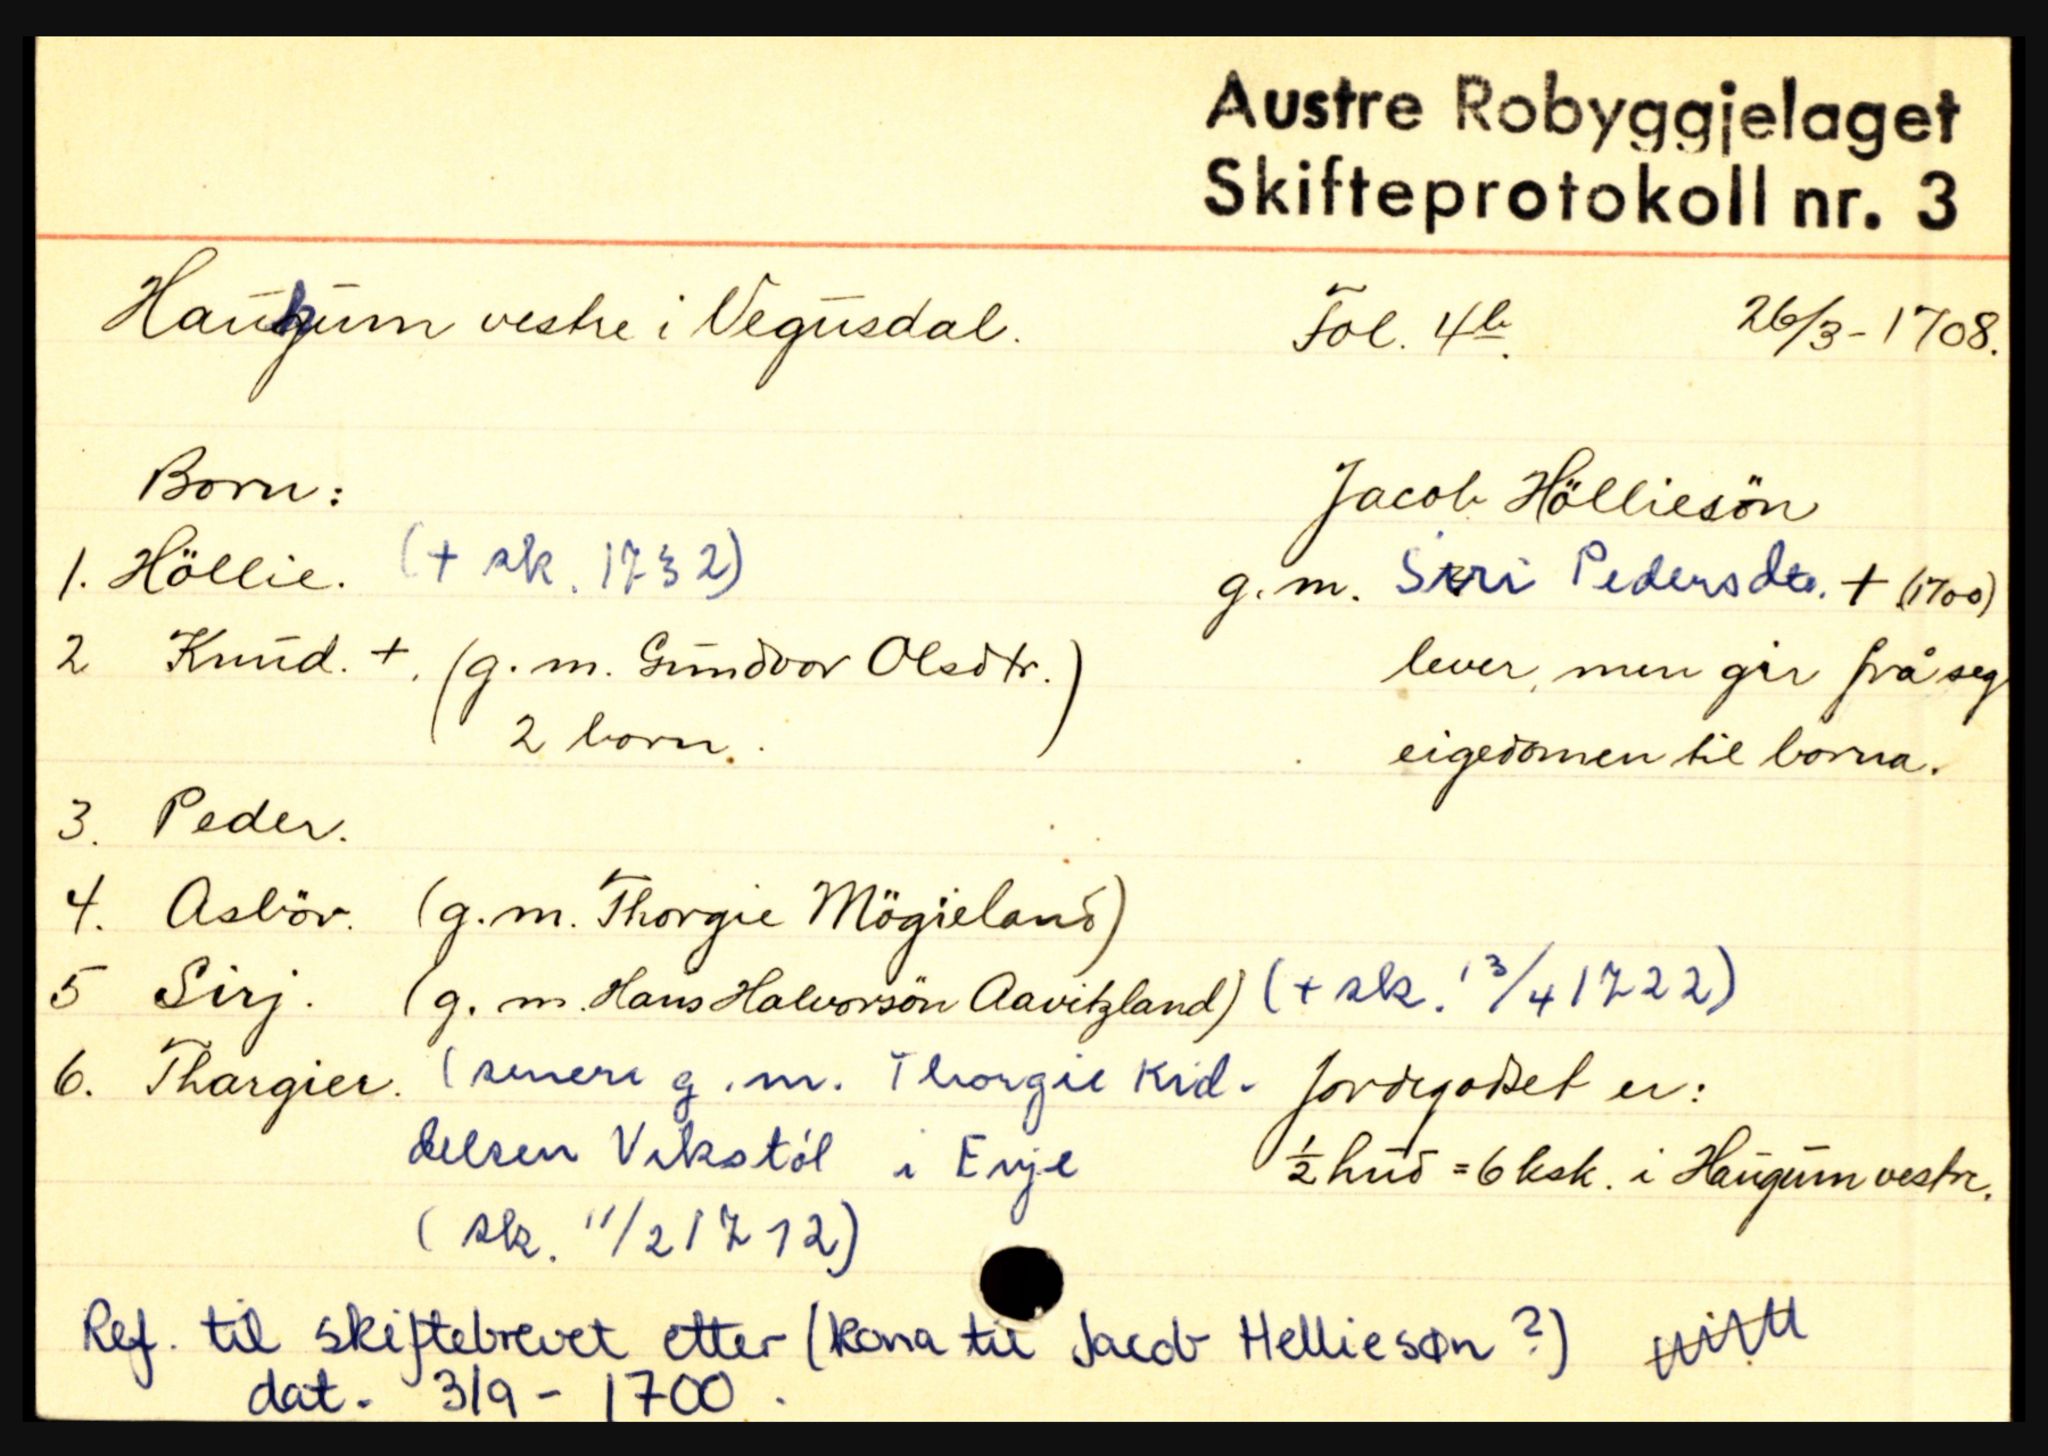 Austre Robyggjelaget
Skifteprotokoll nr. 3
Haukum vestre i Vegusdal. Fol. 4b. 26/3-1708.
Born: Jacob Hölliesön
1. Höllie. (+ sk. 1732) g. m. Siri Pedersdtr. + (1700)
2 Knud. +. (g. m. Gundvor Olsdtr.) lever, men gir frå seg
2 born. eigedomen til borna.
3. Peder.
4. Asbör. (g. m. Thorgie Mögieland)
5 Sirj. (g. m. Hans Halvorsön Aavitzland) (+ sk. 13/4 1722)
6. Thargier. (senere g. m. Thorgie Kid- Jordegodset er:
delsen Vikstöl i Evje ½ hud = 6 ksk. i Haugum vestre.
(sk. 11/2 1712)
Ref. til skiftebrevet etter (kona til Jacob Helliesøn ?)
dat. 3/9 - 1700.